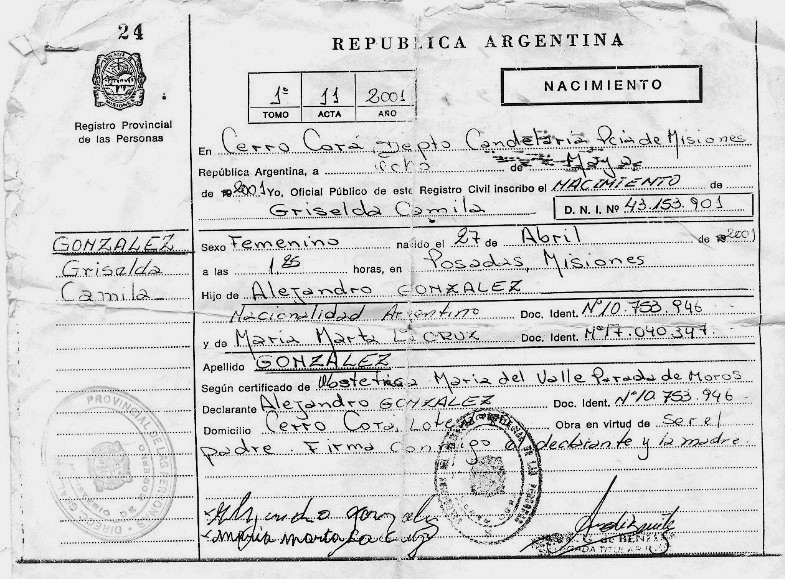 24
REPUBLICA ARGENTINA
NACIMIENTO
1º 11 2001
TOMO ACTA AÑO
Registro Provincial
de las Personas
En Cerro Corá Depto Candelaria Pcia de Misiones
República Argentina, a ocho de Mayo
de 2001 Yo, Oficial Público de este Registro Civil inscribo el NACIMIENTO de
Griselda Camila D. N. I. Nº 43.153.901
GONZALEZ
Griselda
Camila
Sexo Femenino nacido el 27 de Abril de 2001
a las 1,25 horas, en Posadas, Misiones
Hijo de Alejandro GONZALEZ
Nacionalidad Argentino Doc. Ident. Nº10.753.946
y de Maria Marta La CRUZ Doc. Ident. Nº17.040.347
Apellido GONZALEZ
Según certificado de Obstetrica Maria del Valle Parada de Moros
Declarante Alejandro GONZALEZ Doc. Ident. Nº10.753.946
Domicilio Cerro Cora, Lote Obra en virtud de Ser el
padre. Firma Conmigo el declarante y la madre.
Alejandro gonzalez
maria marta la cruz
G. de BENITEZ
PROVINCIAL DE LAS PERSONAS